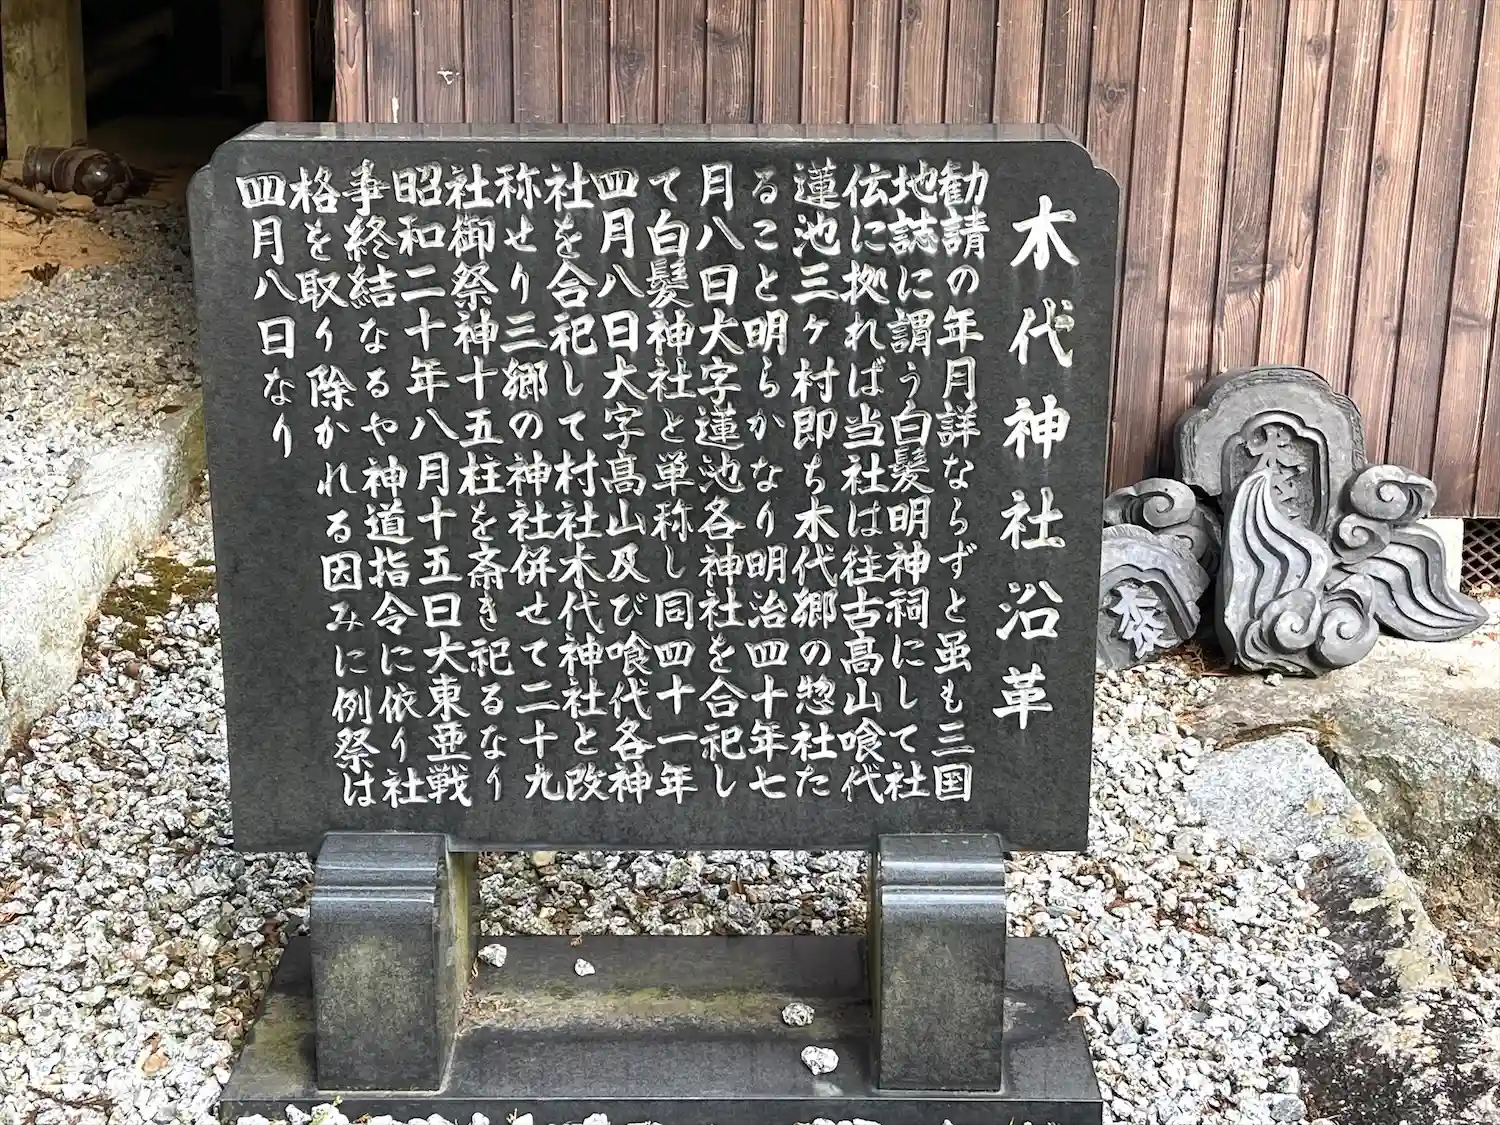 木代神社沿革
勧請の年月詳ならずと虽も三国
地誌に謂う白髪明神祠にして社
伝に拠れば当社は往古髙山喰代
蓮池三ヶ村即ち木代郷の惣社た
ること明らかなり明治四十年七
月八日大字蓮池各神社を合祀し
て白髪神社と単称し同四十一年
四月八日大字髙山及び喰代各神
社を合祀して村社木代神社と改
称せり三郷の神社併せて二十九
社御祭神十五柱を斎き祀るなり
昭和二十年八月十五日大東亜戦
事終結なるや神道指令に依り社
格を取り除かれる因みに例祭は
四月八日なり